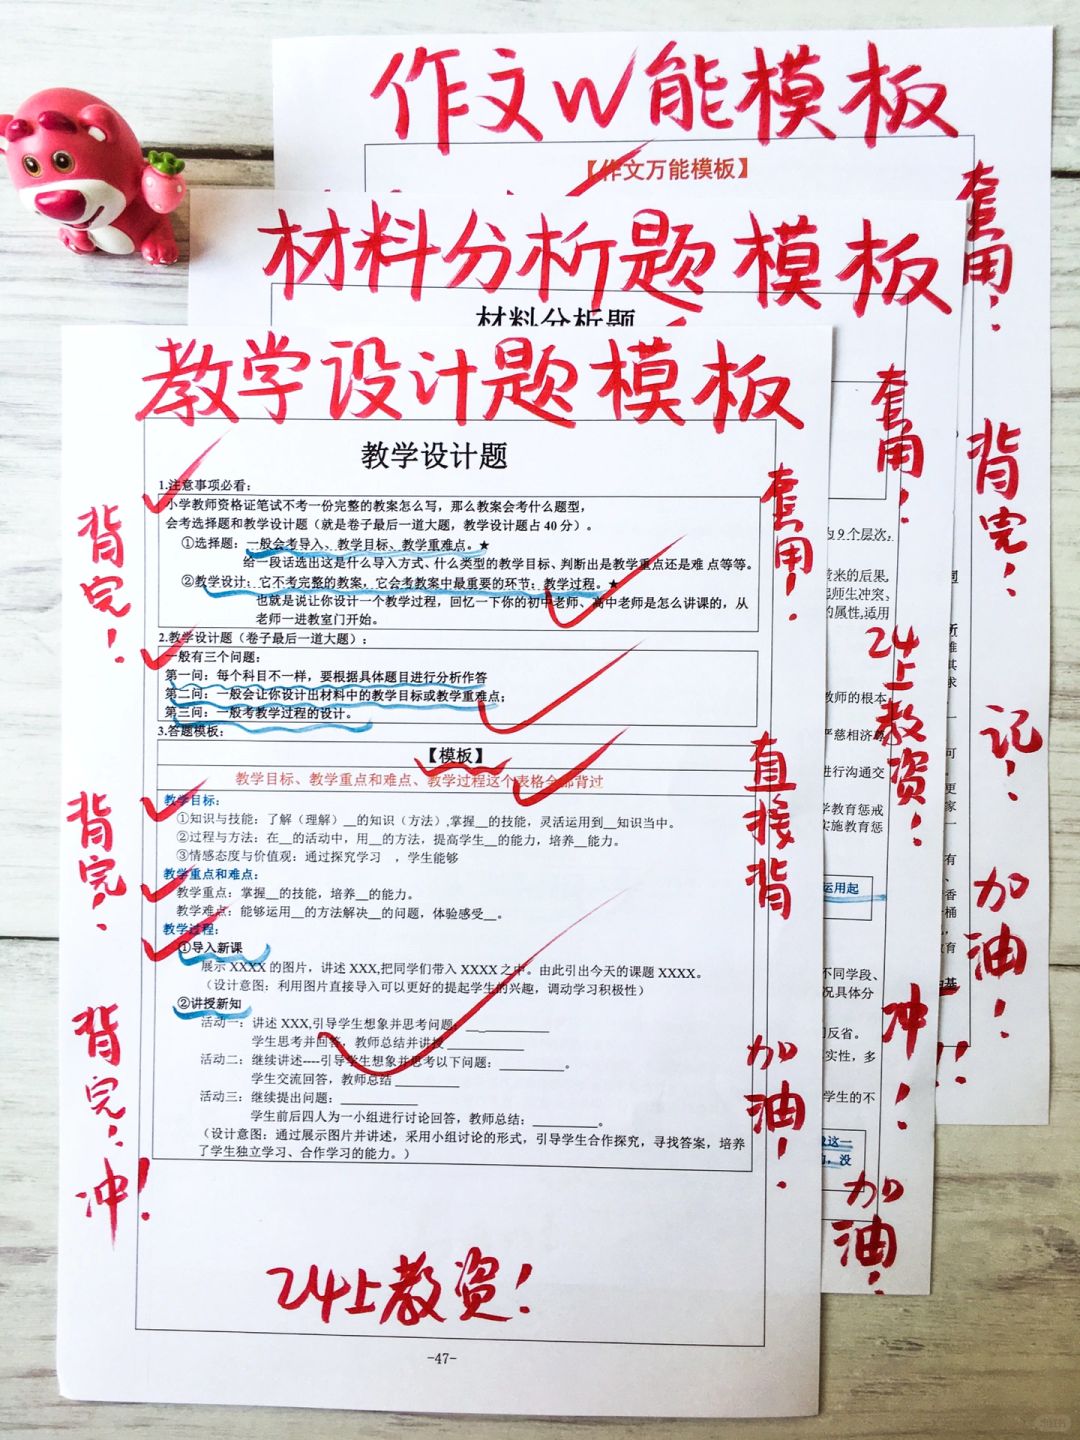 作文W能模板
【作文万能模板】
套用!
背完!
记!
加油!
材料分析题模板
材料分析题
套用!
24上教资!
冲!
加油!
为9个层次,
带来的后果,
起师生冲突、
的属性,适用
教师的根本
严慈相济
进行沟通交
学教育惩戒
实施教育惩
运用起
不同学段、
况具体分
反省。
实性,多
学生的不
教学设计题模板
教学设计题
1.注意事项必看:
小学教师资格证笔试不考一份完整的教案怎么写,那么教案会考什么题型,
会考选择题和教学设计题(就是卷子最后一道大题,教学设计题占 40 分)。
①选择题:一般会考导入、教学目标、教学重难点。★
给一段话选出这是什么导入方式、什么类型的教学目标、判断出是教学重点还是难点等等。
②教学设计:它不考完整的教案,它会考教案中最重要的环节:教学过程。★
也就是说让你设计一个教学过程,回忆一下你的初中老师、高中老师是怎么讲课的,从
老师一进教室门开始。
2.教学设计题(卷子最后一道大题):
一般有三个问题:
第一问:每个科目不一样,要根据具体题目进行分析作答
第二问:一般会让你设计出材料中的教学目标或教学重难点;
第三问:一般考教学过程的设计。
3.答题模板:
【模板】
教学目标、教学重点和难点、教学过程这个表格全部背过
教学目标:
①知识与技能:了解(理解)__的知识(方法),掌握__的技能,灵活运用到__知识当中。
②过程与方法:在__的活动中,用__的方法,提高学生__的能力,培养__能力。
③情感态度与价值观:通过探究学习 ,学生能够
教学重点和难点:
教学重点:掌握__的技能,培养__的能力。
教学难点:能够运用__的方法解决__的问题,体验感受__。
教学过程:
①导入新课
展示 XXXX 的图片,讲述 XXX,把同学们带入 XXXX 之中。由此引出今天的课题 XXXX。
(设计意图:利用图片直接导入可以更好的提起学生的兴趣,调动学习积极性)
②讲授新知
活动一:讲述 XXX,引导学生想象并思考问题:____________
学生思考并回答,教师总结并讲授____________
活动二:继续讲述----引导学生想象并思考以下问题:__________。
学生交流回答,教师总结__________
活动三:继续提出问题:____________
学生前后四人为一小组进行讨论回答,教师总结:__________。
(设计意图:通过展示图片并讲述,采用小组讨论的形式,引导学生合作探究,寻找答案,培养
了学生独立学习、合作学习的能力。)
背完!
背完!
背完!
冲!
套用!
直接背
加油!
24上教资!
-47-